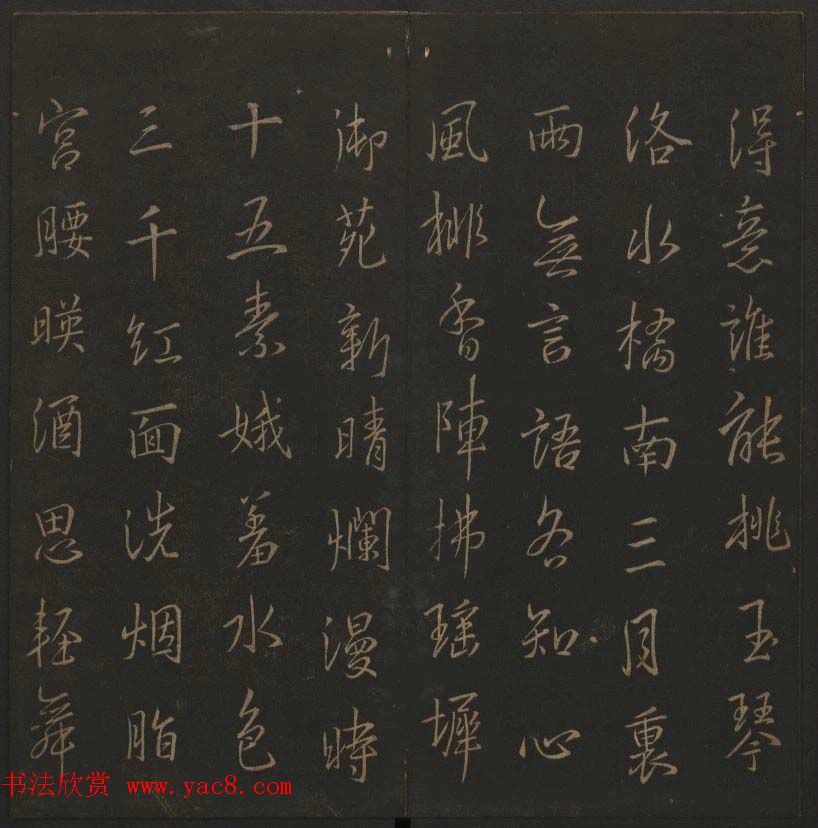 得意誰能挑玉琴
洛水橋南三月裏
兩無言語各知心
風桃香陣拂瑤墀
御苑新晴爛漫時
十五素娥羞水色
三千紅面洗烟脂
宮腰暎酒思輕舞
书法欣赏 www.yac8.com